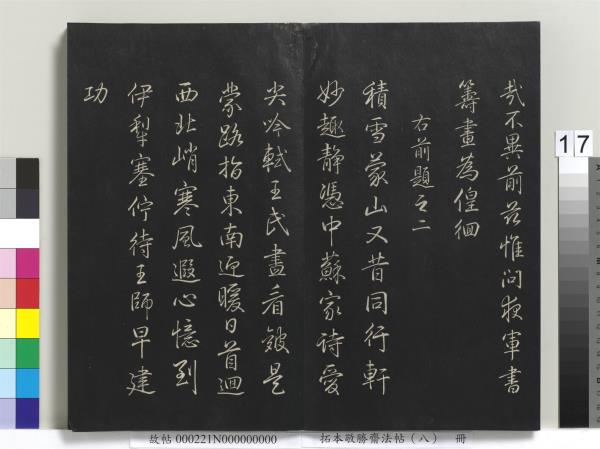 哉不異前茲惟問夜軍書
籌畫為徨徊
右前題之二
積雪蒙山又昔同行軒
妙趣靜憑中蘇家詩愛
尖吟軾王氏畫看皴是
蒙路指東南迎暖日首迴
西北峭寒風遐心憶到
伊犁塞佇待王師早建
功
17
故帖 000221N000000000
拓本敬勝齋法帖（八） 冊